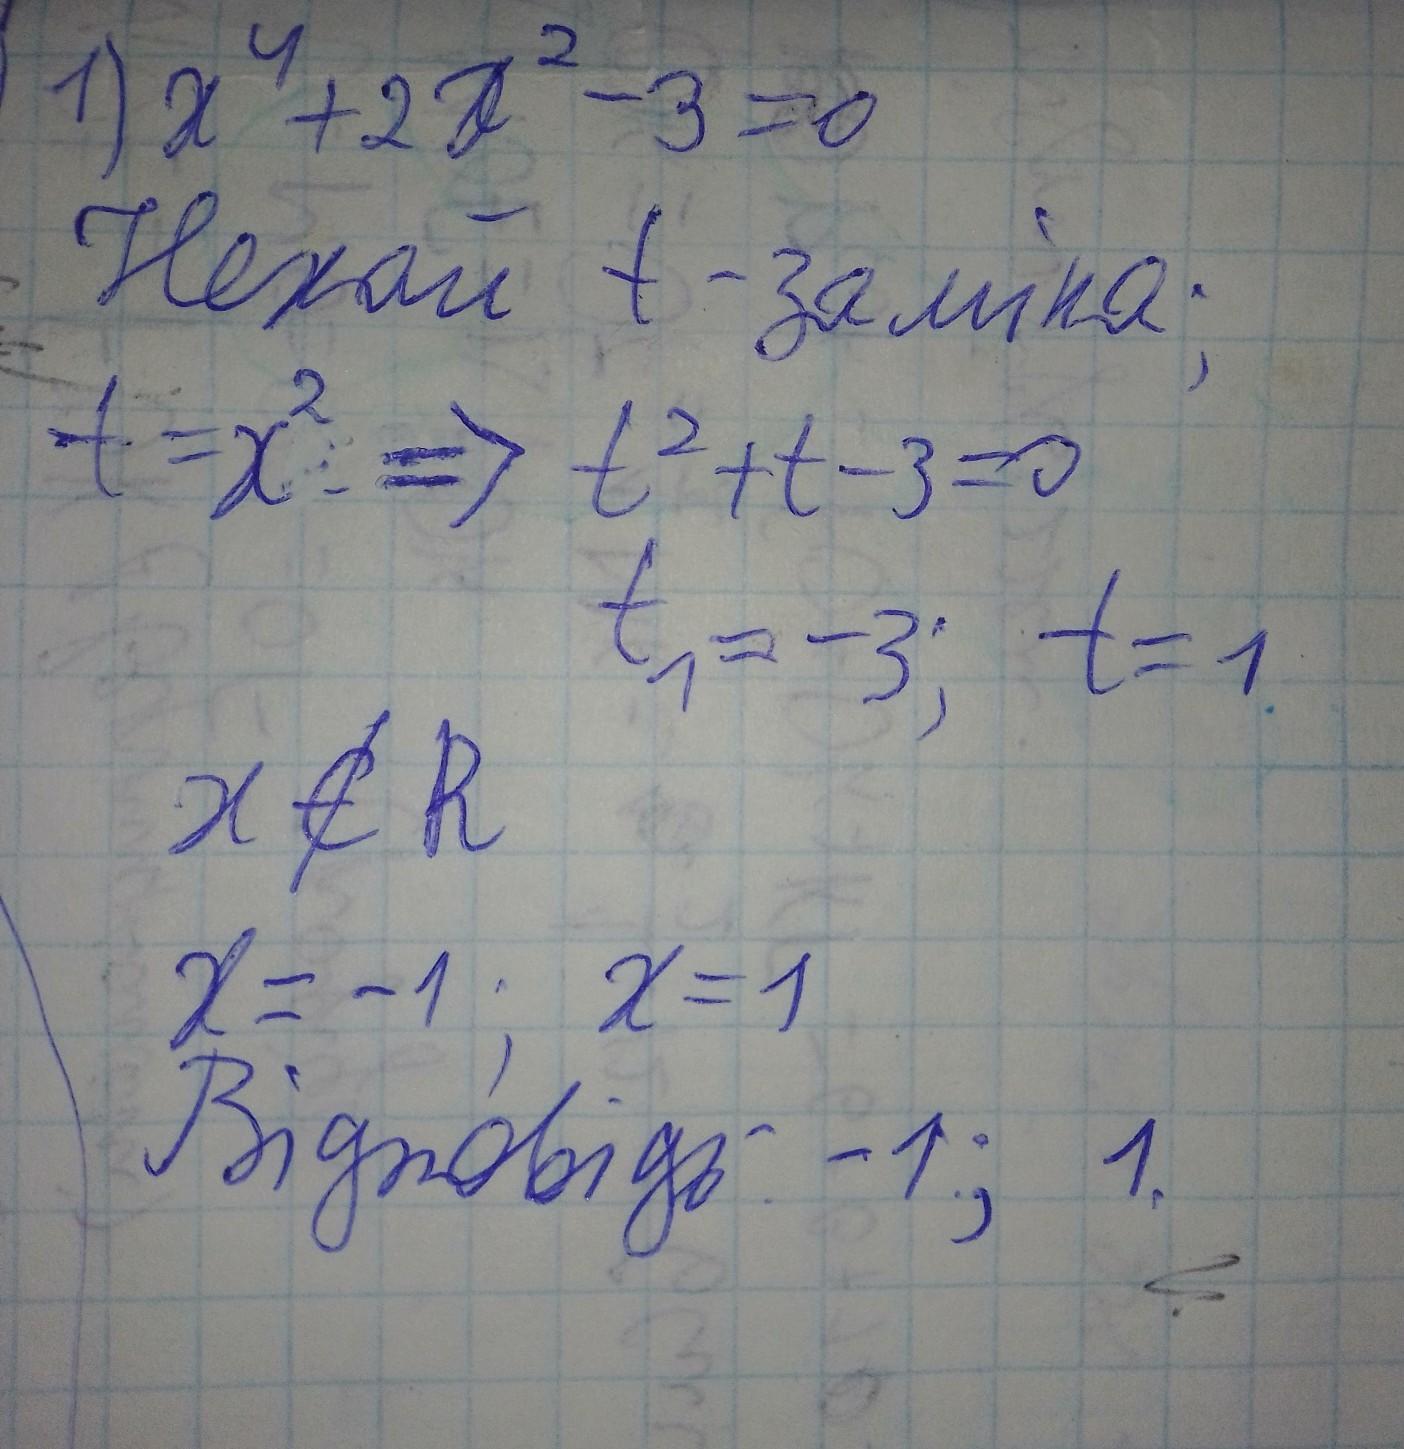 1) x⁴ + 2x² - 3 = 0
Нехай t - заміна;
t = x² => t² + t - 3 = 0
t₁ = -3; t = 1
x ∉ R
x = -1; x = 1
Відповідь: -1; 1.